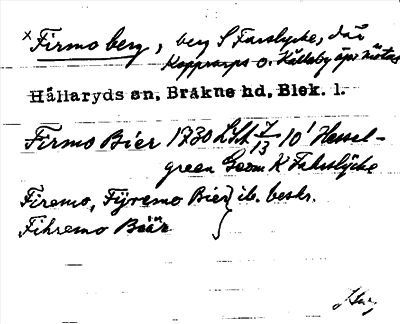 x Firmo berg, berg S Farslycke, där
Kopparps o. Källeby ägor mötas
Hällaryds sn, Bräkne hd, Blek. l.
Firmo Bier 1730 LSA 7/13 10' Hessel-
green Geom K Fahrslÿcke
Firemo, Fÿremo Bier } ib. beskr.
Fihremo Biär